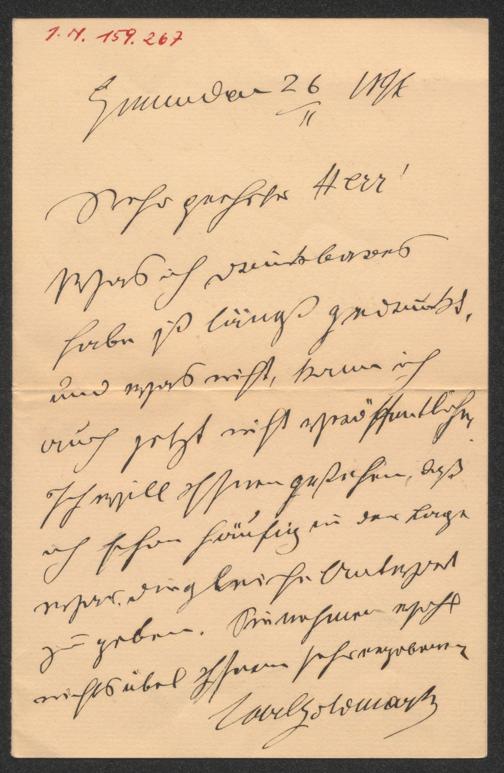 I.N. 159.267
Gmunden 26/11
Sehr geehrter Herr!
Was ich druckbares
habe ist längst gedruckt,
und was nicht, kann ich
auch jetzt nicht veröffentlichen
Ich will Ihnen gestehen, daß
ich schon häufig in der Lage
war, die gleiche Antwort
zu geben. Sie nehmen wohl
nichts übel Ihrem sehr ergebenen
Carl Goldmark